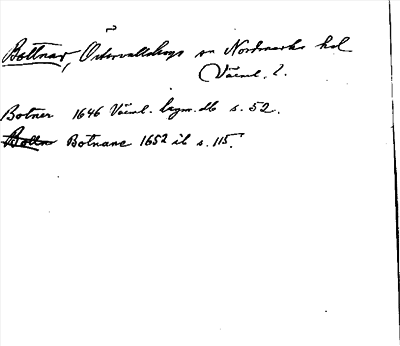 Bottnar, Östervallskogs sn Nordmarks hd
Värml. l.
Botner 1646 Värml. bygn. db s. 52.
Bottn Botnane 1652 ib s. 115.